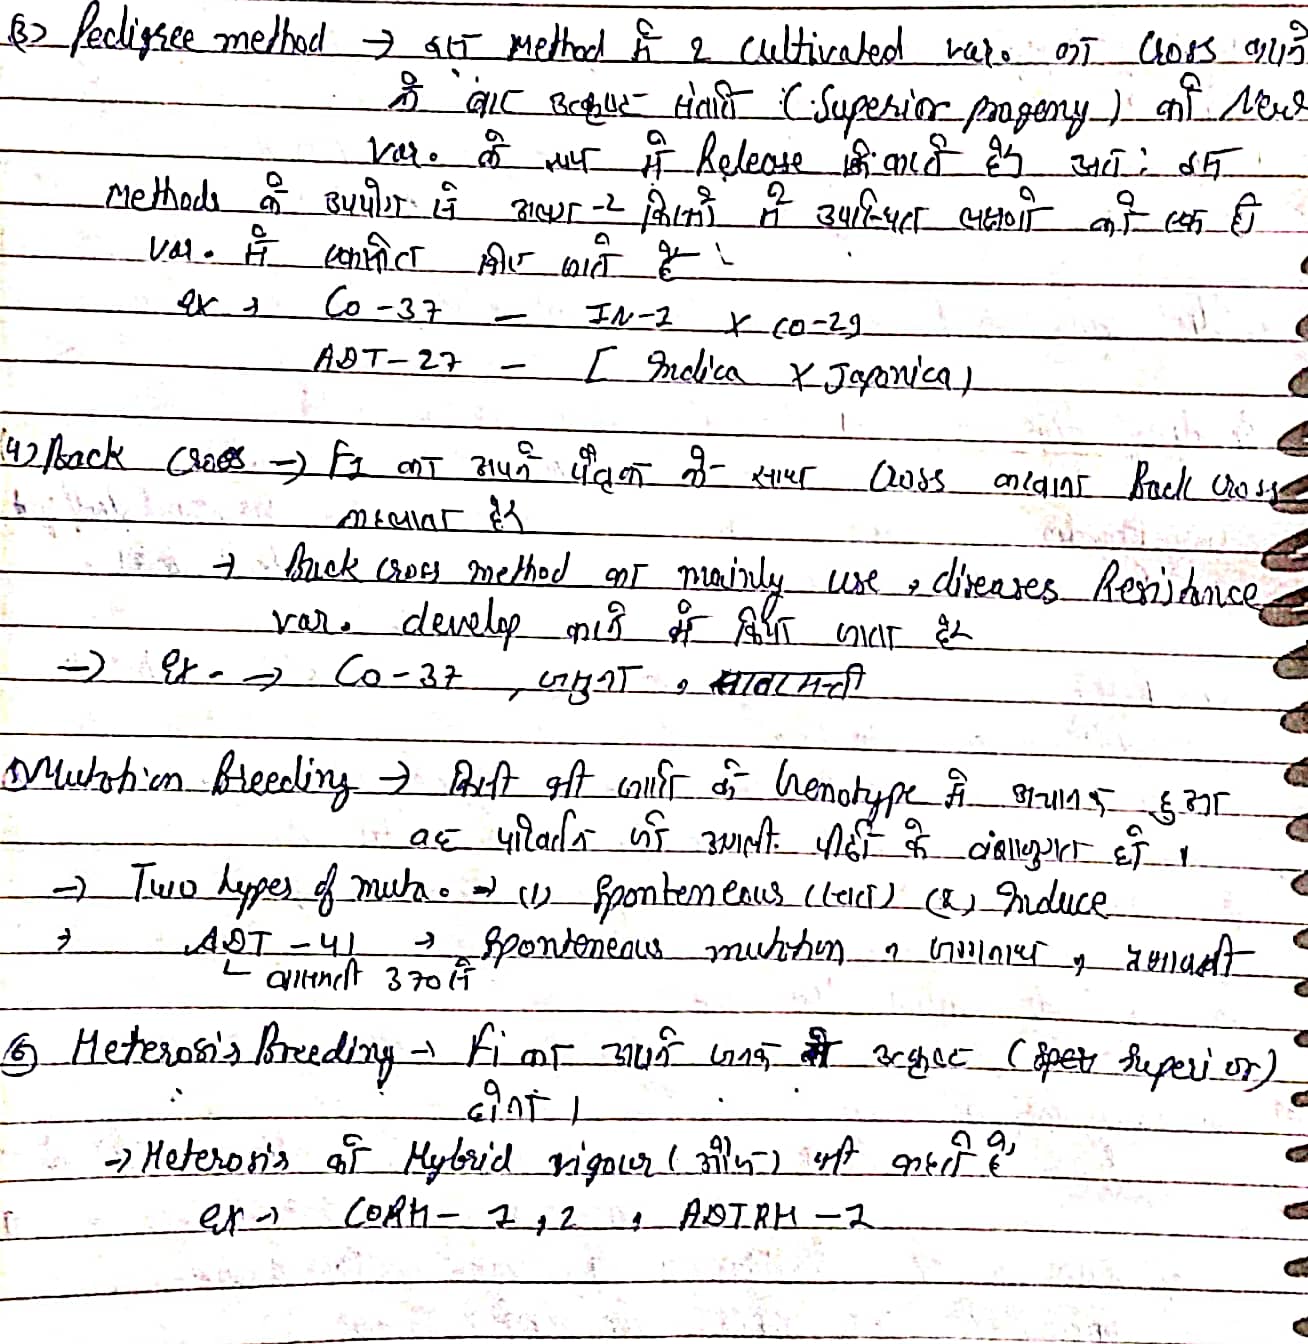 (3) Pedigree method → इस Method में 2 cultivated var. का Cross कराने
के बाद उत्कृष्ट संतति (Superior progeny) को New
var. के रूप में Release की जाती है अतः इस
Methods के उपयोग से अलग-2 किस्मों में उपस्थित लक्षणों को एक ही
var. में एकत्रित किए जाते है।
ex → Co-37 — IN-1 X CO-29
ADT-27 — [ Indica X Japonica)
(4) Back Cross → F1 का अपने पैतृक के साथ Cross करवाना Back cross
कहलाता है
→ Back cross method का mainly use, diseases Resistance
var. develop करने में किया जाता है
→ ex. → Co-37, जमुना, साबरमती
Mutation Breeding → किसी भी जाति के Genotype में अचानक हुआ
वह परिवर्तन जो अगली पीढ़ी के वंशानुगत हो।
→ Two types of muta. → (1) Sponteneous (स्वतः) (2) Induce
→ ADT-41 → Sponteneous mutation, जगन्नाथ,
बासमती 370 से
(6) Heterosis Breeding → F1 का अपने जनक से उत्कृष्ट (Superior)
होना।
→ Heterosis को Hybrid vigour (ओज) भी कहते है
ex → CORH-1,2, ADTRH-1